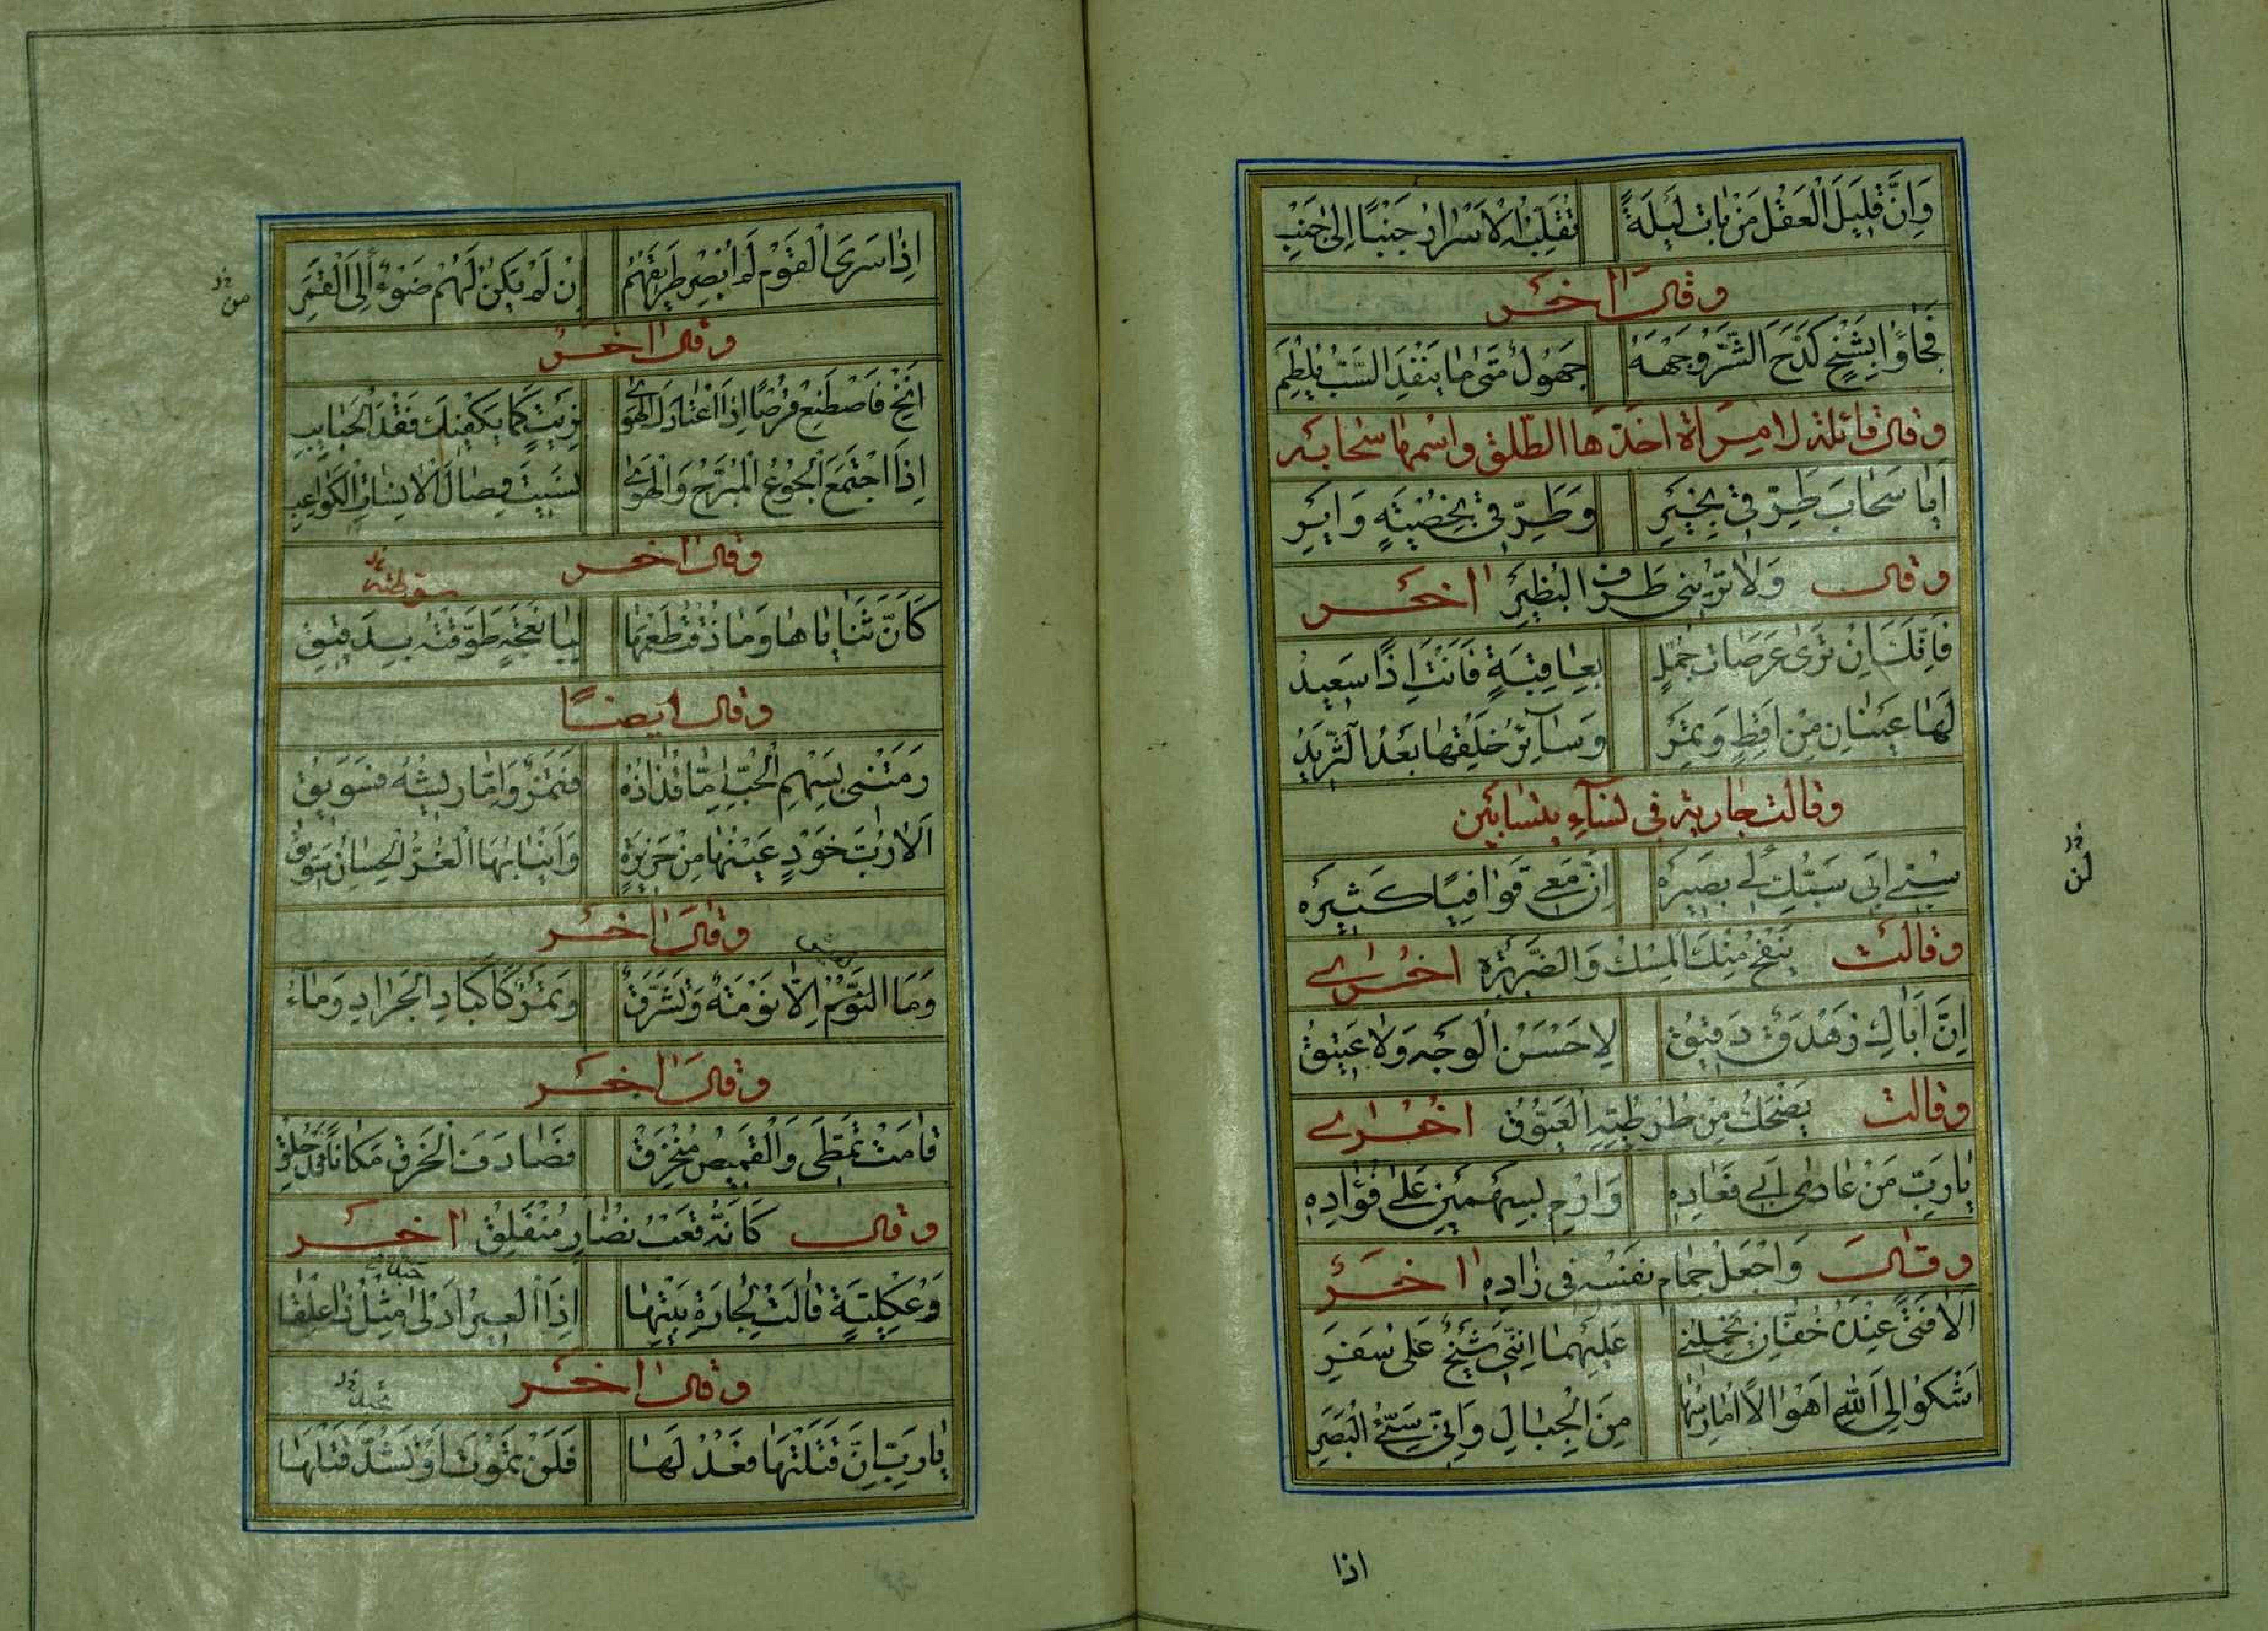 وَاِنَّ قَلِيلَ الْعَقْلِ مَنْ بَاتَ لَيْلَةً تُقَلِّبُهُ الْاَسْرَارُ جَنْبًا اِلٰى جَنْبِ
وقال اٰخر
فَجَاؤُا بِشَيْخٍ كَدَّحَ الشَّرُّ وَجْهَهُ جَهُولٌ مَتٰى مَا يَنْفَدِ السَّبُّ يَلْطِمِ
وقال قائلة لامرأة اخذها الطلق واسمها سحابه
اَيَا سَحَابَ طَرِّقِى بِخَيْرِ وَطَرِّقِى بِخُصْيَةٍ وَاَيْرِ
وقال وَلَا تُرِينِى طَرَفَ الْبُظَيْرِ اٰخر
فَاِنَّكَ اِنْ تَرٰى عَرَصَاتِ جُمْلٍ بِعَاقِبَةٍ فَاَنْتَ اِذًا سَعِيدُ
لَهَا عَيْنَانِ مِنْ اَقِطٍ وَتَمْرٍ وَسَآئِرُ خَلْقِهَا بَعْدُ الثَّرِيدُ
وقالت جارية فى نسآء يتسابين
سُبِّى اَبِى سَبُّكِ لِى بَصِيرَه اِنَّ مَعِى قَوَافِيًا كَثِيرَه
لن
وقالت يَنْفَحُ مِنْكَ الْمِسْكُ وَالضَّرِيرَه اخرى
اِنَّ اَبَاكِ زَهْدَقٌ دَقِيقُ لَا حَسَنُ الْوَجْهِ وَلَا عَتِيقُ
وقالت يَضْحَكُ مِنْ طُرْطُبِّهِ الْعَنُوقُ اخرى
يَا رَبِّ مَنْ عَادٰى اَبِى فَعَادِهِ وَارْمِ بِسَهْمَيْنِ عَلٰى فُؤَادِهِ
وقال وَاجْعَلْ حِمَامَ نَفْسِهِ فِى زَادِهِ اٰخر
اَلَا فَتًى عِنْدَهُ خُفَّانِ يَحْمِلُنِى عَلَيْهِمَا اِنَّنِى شَيْخٌ عَلٰى سَفَرِ
اَشْكُو اِلَى اللهِ اَهْوَالًا اُمَارِسُهَا مِنَ الْجِبَالِ وَاَنِّى سَيِّئُ الْبَصَرِ
اذا
اِذَا سَرَى الْقَوْمُ لَمْ اُبْصِرْ طَرِيقَهُمُ اِنْ لَمْ يَكُنْ لَهُمْ ضَوْءٌ اِلَى الْقَمَرِ
من
وقال اٰخر
اَنِخْ فَاصْطَنِعْ قُرْصًا اِذَا اعْتَادَكَ الْهَوٰى بِزَيْتٍ كَمَا يَكْفِيكَ فَقْدَ الْحَبَايِبِ
اِذَا اجْتَمَعَ الْجُوعُ الْمُبَرِّحُ وَالْهَوٰى نَسِيتَ وِصَالَ الْآنِسَاتِ الْكَوَاعِبِ
وقال اٰخر
كَاَنَّ ثَنَايَاهَا وَمَا ذُقْتُ طَعْمَهَا لِبَا نَعْجَةٍ طَوَّقْتَهُ بِدَقِيقِ
وقال ايضًا
رَمَتْنِى بِسَهْمِ الْحُبِّ اِمَّا قُذَاذُهُ فَتَمْرٌ وَاِمَّا رِيشُهُ فَسَوِيقُ
اَلَا رُبَّ خَوْدٍ عَيْنُهَا مِنْ خَزِيرَةٍ وَاَنْيَابُهَا الْغُرُّ الْحِسَانُ سَوِيقُ
وقال اٰخر
وَمَا النَّوْمُ اِلَّا نَوْمَةٌ وَتَشَرُّقٌ وَتَمْرٌ كَاَكْبَادِ الْجَرَادِ وَمَآءُ
وقال اٰخر
قَامَتْ تَمَطّٰى وَالْقَمِيصُ مُنْخَرِقْ فَصَادَفَ الْخَرْقُ مَكَانًا قَدْ حُلِقْ
وقال كَاَنَّهُ قَعْبُ نُضَارٍ مُنْفَلِقْ اٰخر
وَعُكْلِيَّةٍ قَالَتْ لِجَارَةِ بَيْتِهَا اِذَا الْعَيْرُ اَدْلٰى مِثْلُ ذَا عِلْقًا
وقال اٰخر
يَا رَبِّ اِنْ قَتَلْتَهَا فَعُدْ لَهَا فَلَنْ تَمُوتَ اَوْ تَشُدَّ قَتْلَهَا